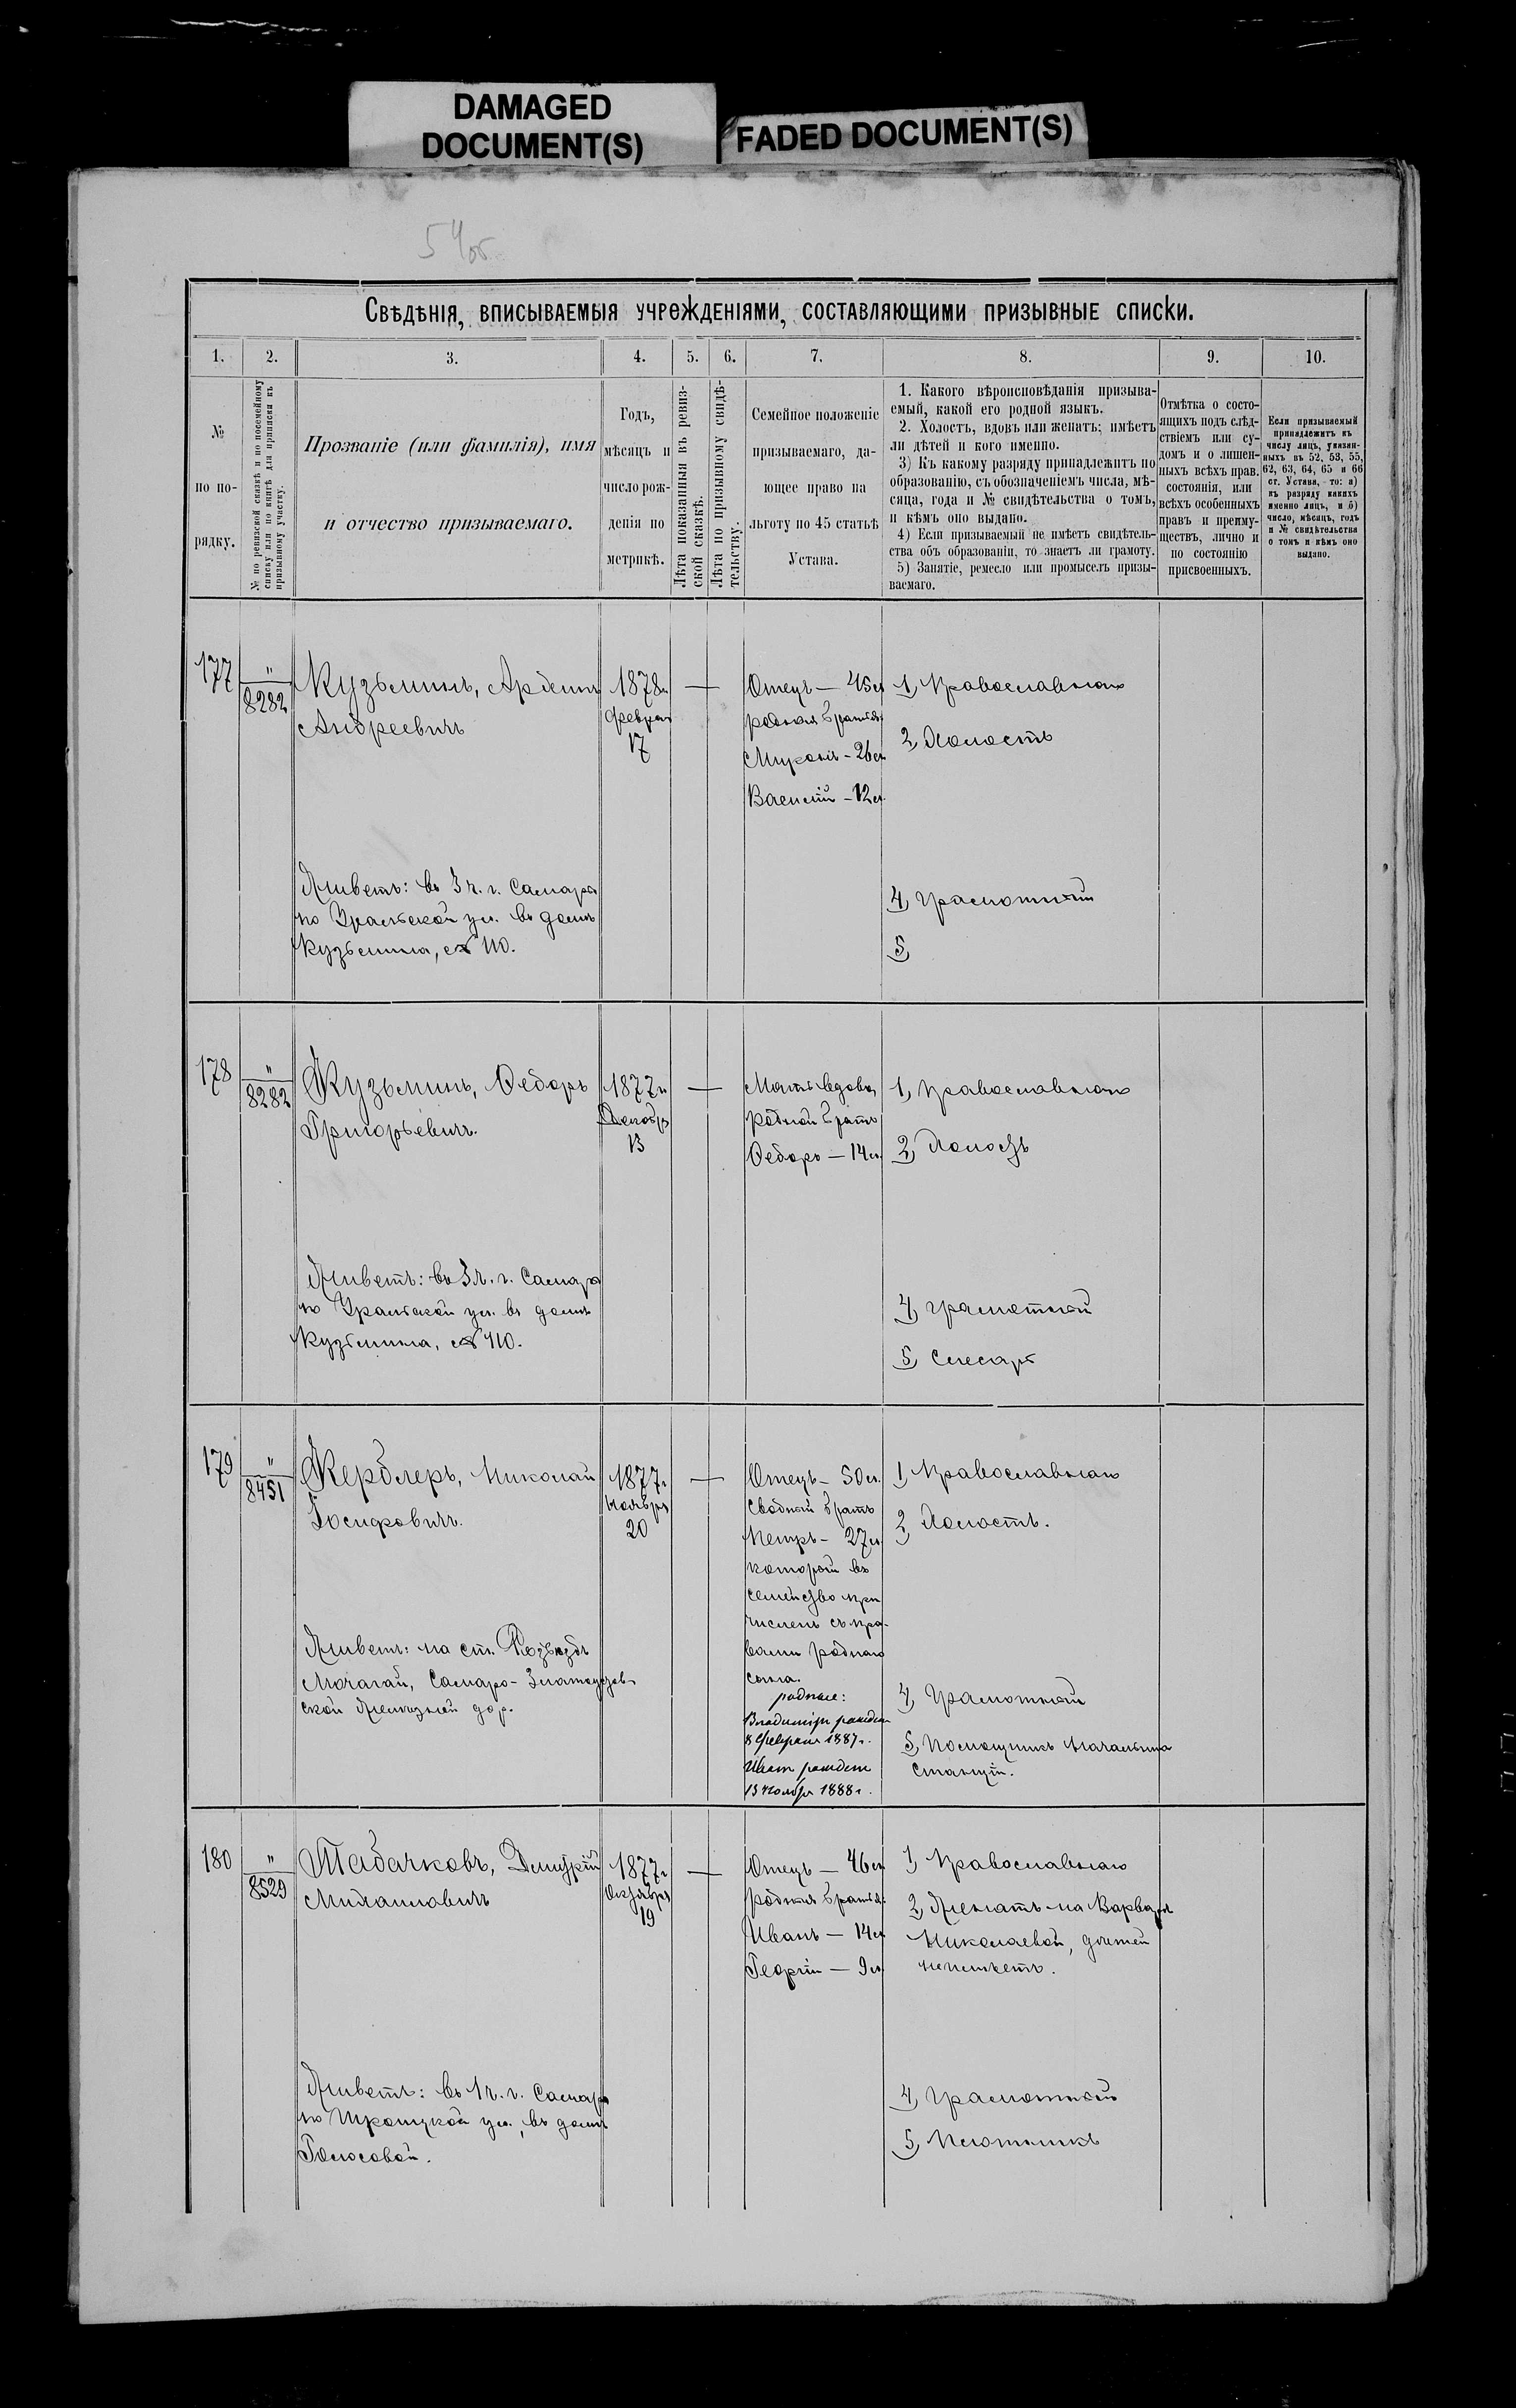 DAMAGED
DOCUMENT(S)
FADED DOCUMENT(S)
54об
Свѣдѣнія, вписываемыя учрежденіями, составляющими призывные списки.
1. 2. 3. 4. 5. 6. 7. 8. 9. 10.
№
по по-
рядку.
№ по ревизской сказкѣ и по посемейному
списку или по книгѣ для приписки къ
призывному участку.
Прозваніе (или фамилія), имя
и отчество призываемаго.
Годъ,
мѣсяцъ и
число рож-
денія по
метрикѣ.
Лѣта показанныя въ ревиз-
ской сказкѣ.
Лѣта по призывному свидѣ-
тельству.
Семейное положеніе
призываемаго, да-
ющее право на
льготу по 45 статьѣ
Устава.
1. Какого вѣроисповѣданія призыва-
емый, какой его родной языкъ.
2. Холостъ, вдовъ или женатъ; имѣетъ
ли дѣтей и кого именно.
3) Къ какому разряду принадлежитъ по
образованію, съ обозначеніемъ числа, мѣ-
сяца, года и № свидѣтельства о томъ,
и кѣмъ оно выдано.
4) Если призываемый не имѣетъ свидѣтель-
ства объ образованіи, то знаетъ ли грамоту.
5) Занятіе, ремесло или промыселъ призы-
ваемаго.
Отмѣтка о состо-
ящихъ подъ слѣд-
ствіемъ или су-
домъ и о лишен-
ныхъ всѣхъ прав.
состоянія, или
всѣхъ особенныхъ
правъ и преиму-
ществъ, лично и
по состоянію
присвоенныхъ.
Если призываемый
принадлежитъ къ
числу лицъ, указан-
ныхъ въ 52, 53, 55,
62, 63, 64, 65 и 66
ст. Устава, то: а)
къ разряду какихъ
именно лицъ, и б)
число, мѣсяцъ, годъ
и № свидѣтельства
о томъ и кѣмъ оно
выдано.
177
"
8282
Кузьминъ,
Андреевичъ
1878г.
Февраля
17
—
Отецъ — 45 л.
родныя братья:
Миронъ - 26 л.
Василій - 12 л.
1, Православнаго
2, Холостъ
Живетъ: въ 3 ч. г. Самары
по Уральской ул. въ домѣ
Кузьмина, № 110.
4, грамотный
5,
178
"
8282
Кузьминъ, Ѳедоръ
Григорьевичъ.
1877г.
Декабря
13
—
Мать вдова,
родной братъ
Ѳедоръ — 14 л.
1, Православнаго
2, Холостъ
Живетъ: въ 3 ч. г. Самары
по Уральской ул. въ домѣ
Кузьмина, № 110.
4, грамотный
5, Слесарь
179
"
8451
Кердлеръ, Николай
Іосифовичъ.
1877г.
Ноября
20
—
Отецъ - 50 л.
Сводный братъ
Петръ - 27 л.
который въ
семейство при
численъ съ пра-
вами роднаго
сына.
родные:
Владиміръ рожден
8 Февраля 1887 г.
Иванъ рожден
13 Ноября 1888 г.
1, Православнаго
2, Холостъ.
Живетъ: на ст.
Самаро-Златоустов-
ской Желѣзной дор.
4, Грамотный
5, Помощникъ Начальника
Станціи.
180
"
8529
Табачковъ, Дмитрій
Михаиловичъ
1877г.
Октября
19
—
Отецъ — 46 л.
родныя братья:
Иванъ — 14 л.
Георгій — 9 л.
1, Православнаго
2, Женатъ на Варварѣ
Николаевой, дѣтей
неимѣетъ.
Живетъ: въ 1 ч. г. Самары
по Троицкой ул., въ домѣ
Голосовой.
4, Грамотный
5, Плотникъ